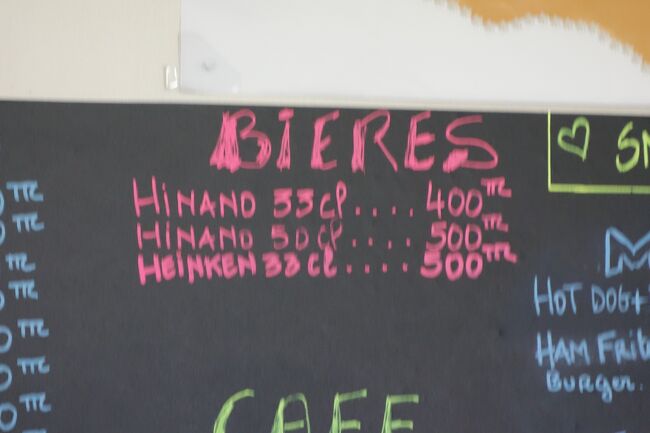 BIERES
HINANO 33 Cl.... 400 TTC
HINANO 50 Cl.... 500 TTC
HEINKEN 33 Cl.... 500 TTC
♡ SN
M
HOT DOG+
HAM FRit
BURGER.
CAFE